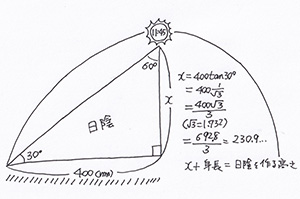 11:45
60°
x
日陰
30°
400(mm)
x=400tan30°
=400 1/√3
=400√3/3
(√3=1.732)
=692.8/3=230.9...
x+身長=日陰を作る高さ